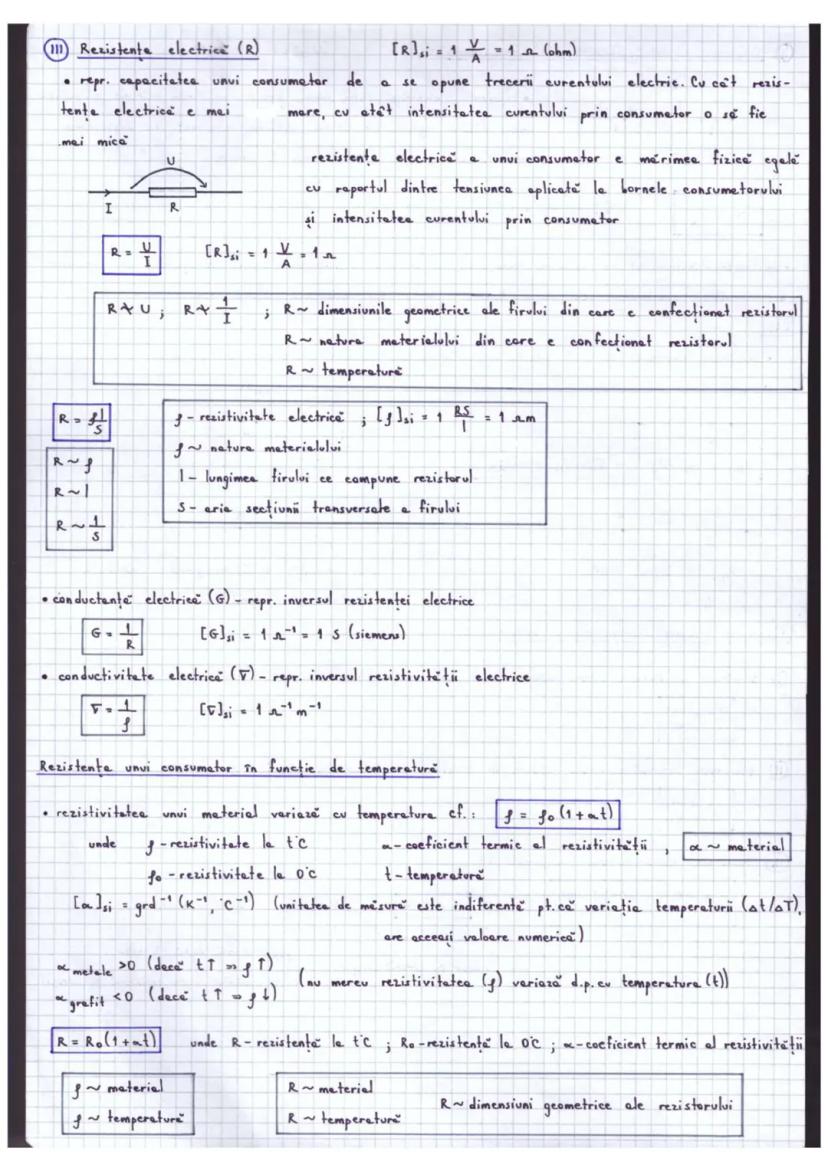 III Rezistența electrică (R) [R]si = 1 V/A = 1 Ω (ohm)
• repr. capacitatea unui consumator de a se opune trecerii curentului electric. Cu cât rezis-
tența electrică e mai mare, cu atât intensitatea curentului prin consumator o să fie
mai mică
U
I R
rezistența electrică a unui consumator e mărimea fizică egală
cu raportul dintre tensiunea aplicată la bornele consumatorului
și intensitatea curentului prin consumator
R = U/I [R]si = 1 V/A = 1 Ω
R ≁ U ; R ≁ 1/I ; R ~ dimensiunile geometrice ale firului din care e confecționat rezistorul
R ~ natura materialului din care e confecționat rezistorul
R ~ temperatură
R = ρl/S
R ~ ρ
R ~ l
R ~ 1/S
ρ - rezistivitate electrică ; [ρ]si = 1 RS/l = 1 Ωm
ρ ~ natura materialului
l - lungimea firului ce compune rezistorul
S - aria secțiunii transversale a firului
• conductanță electrică (G) - repr. inversul rezistenței electrice
G = 1/R [G]si = 1 Ω⁻¹ = 1 S (siemens)
• conductivitate electrică (σ) - repr. inversul rezistivității electrice
σ = 1/ρ [σ]si = 1 Ω⁻¹m⁻¹
Rezistența unui consumator în funcție de temperatură
• rezistivitatea unui material variază cu temperatura cf.: ρ = ρ₀(1+αt)
unde ρ - rezistivitate la t°C α - coeficient termic al rezistivității , α ~ material
ρ₀ - rezistivitate la 0°C t - temperatură
[α]si = grd⁻¹ (K⁻¹, °C⁻¹) (unitatea de măsură este indiferentă pt. că variația temperaturii (Δt/ΔT),
are aceeași valoare numerică)
α metale > 0 (dacă t↑ ⇒ ρ↑)
α grafit < 0 (dacă t↑ ⇒ ρ↓)
(nu mereu rezistivitatea (ρ) variază d.p. cu temperatura (t))
R = R₀(1+αt) unde R - rezistență la t°C ; R₀ - rezistență la 0°C ; α - coeficient termic al rezistivității
ρ ~ material
ρ ~ temperatură
R ~ material
R ~ temperatură
R ~ dimensiuni geometrice ale rezistorului